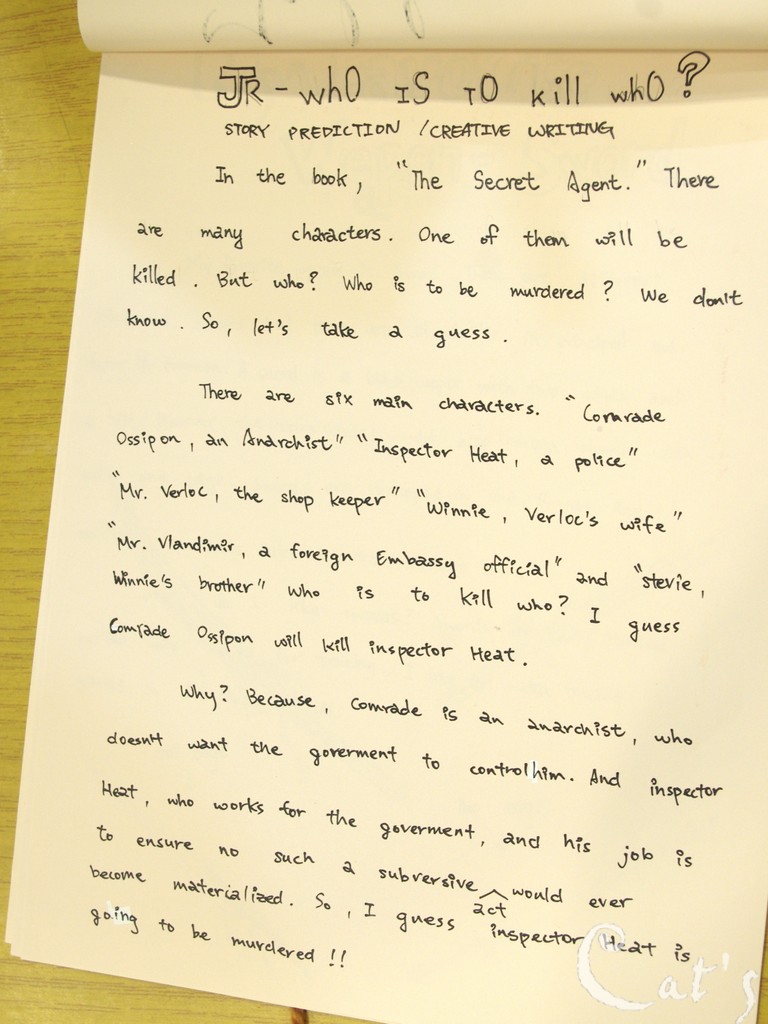 JR - whO IS TO kill whO?
STORY PREDICTION / CREATIVE WRITING
In the book, "The Secret Agent." There
are many characters. One of them will be
killed. But who? Who is to be murdered? We don't
know. So, let's take a guess.
There are six main characters. "Comrade
Ossipon, an Anarchist" "Inspector Heat, a police"
"Mr. Verloc, the shop keeper" "Winnie, Verloc's wife"
"Mr. Vlandimir, a foreign Embassy official" and "stevie,
Winnie's brother" who is to kill who? I guess
Comrade Ossipon will kill inspector Heat.
Why? Because, Comrade is an anarchist, who
doesn't want the goverment to control him. And inspector
Heat, who works for the goverment, and his job is
to ensure no such a subversive act would ever
become materialized. So, I guess inspector Heat is
going to be murdered!!
Cat's